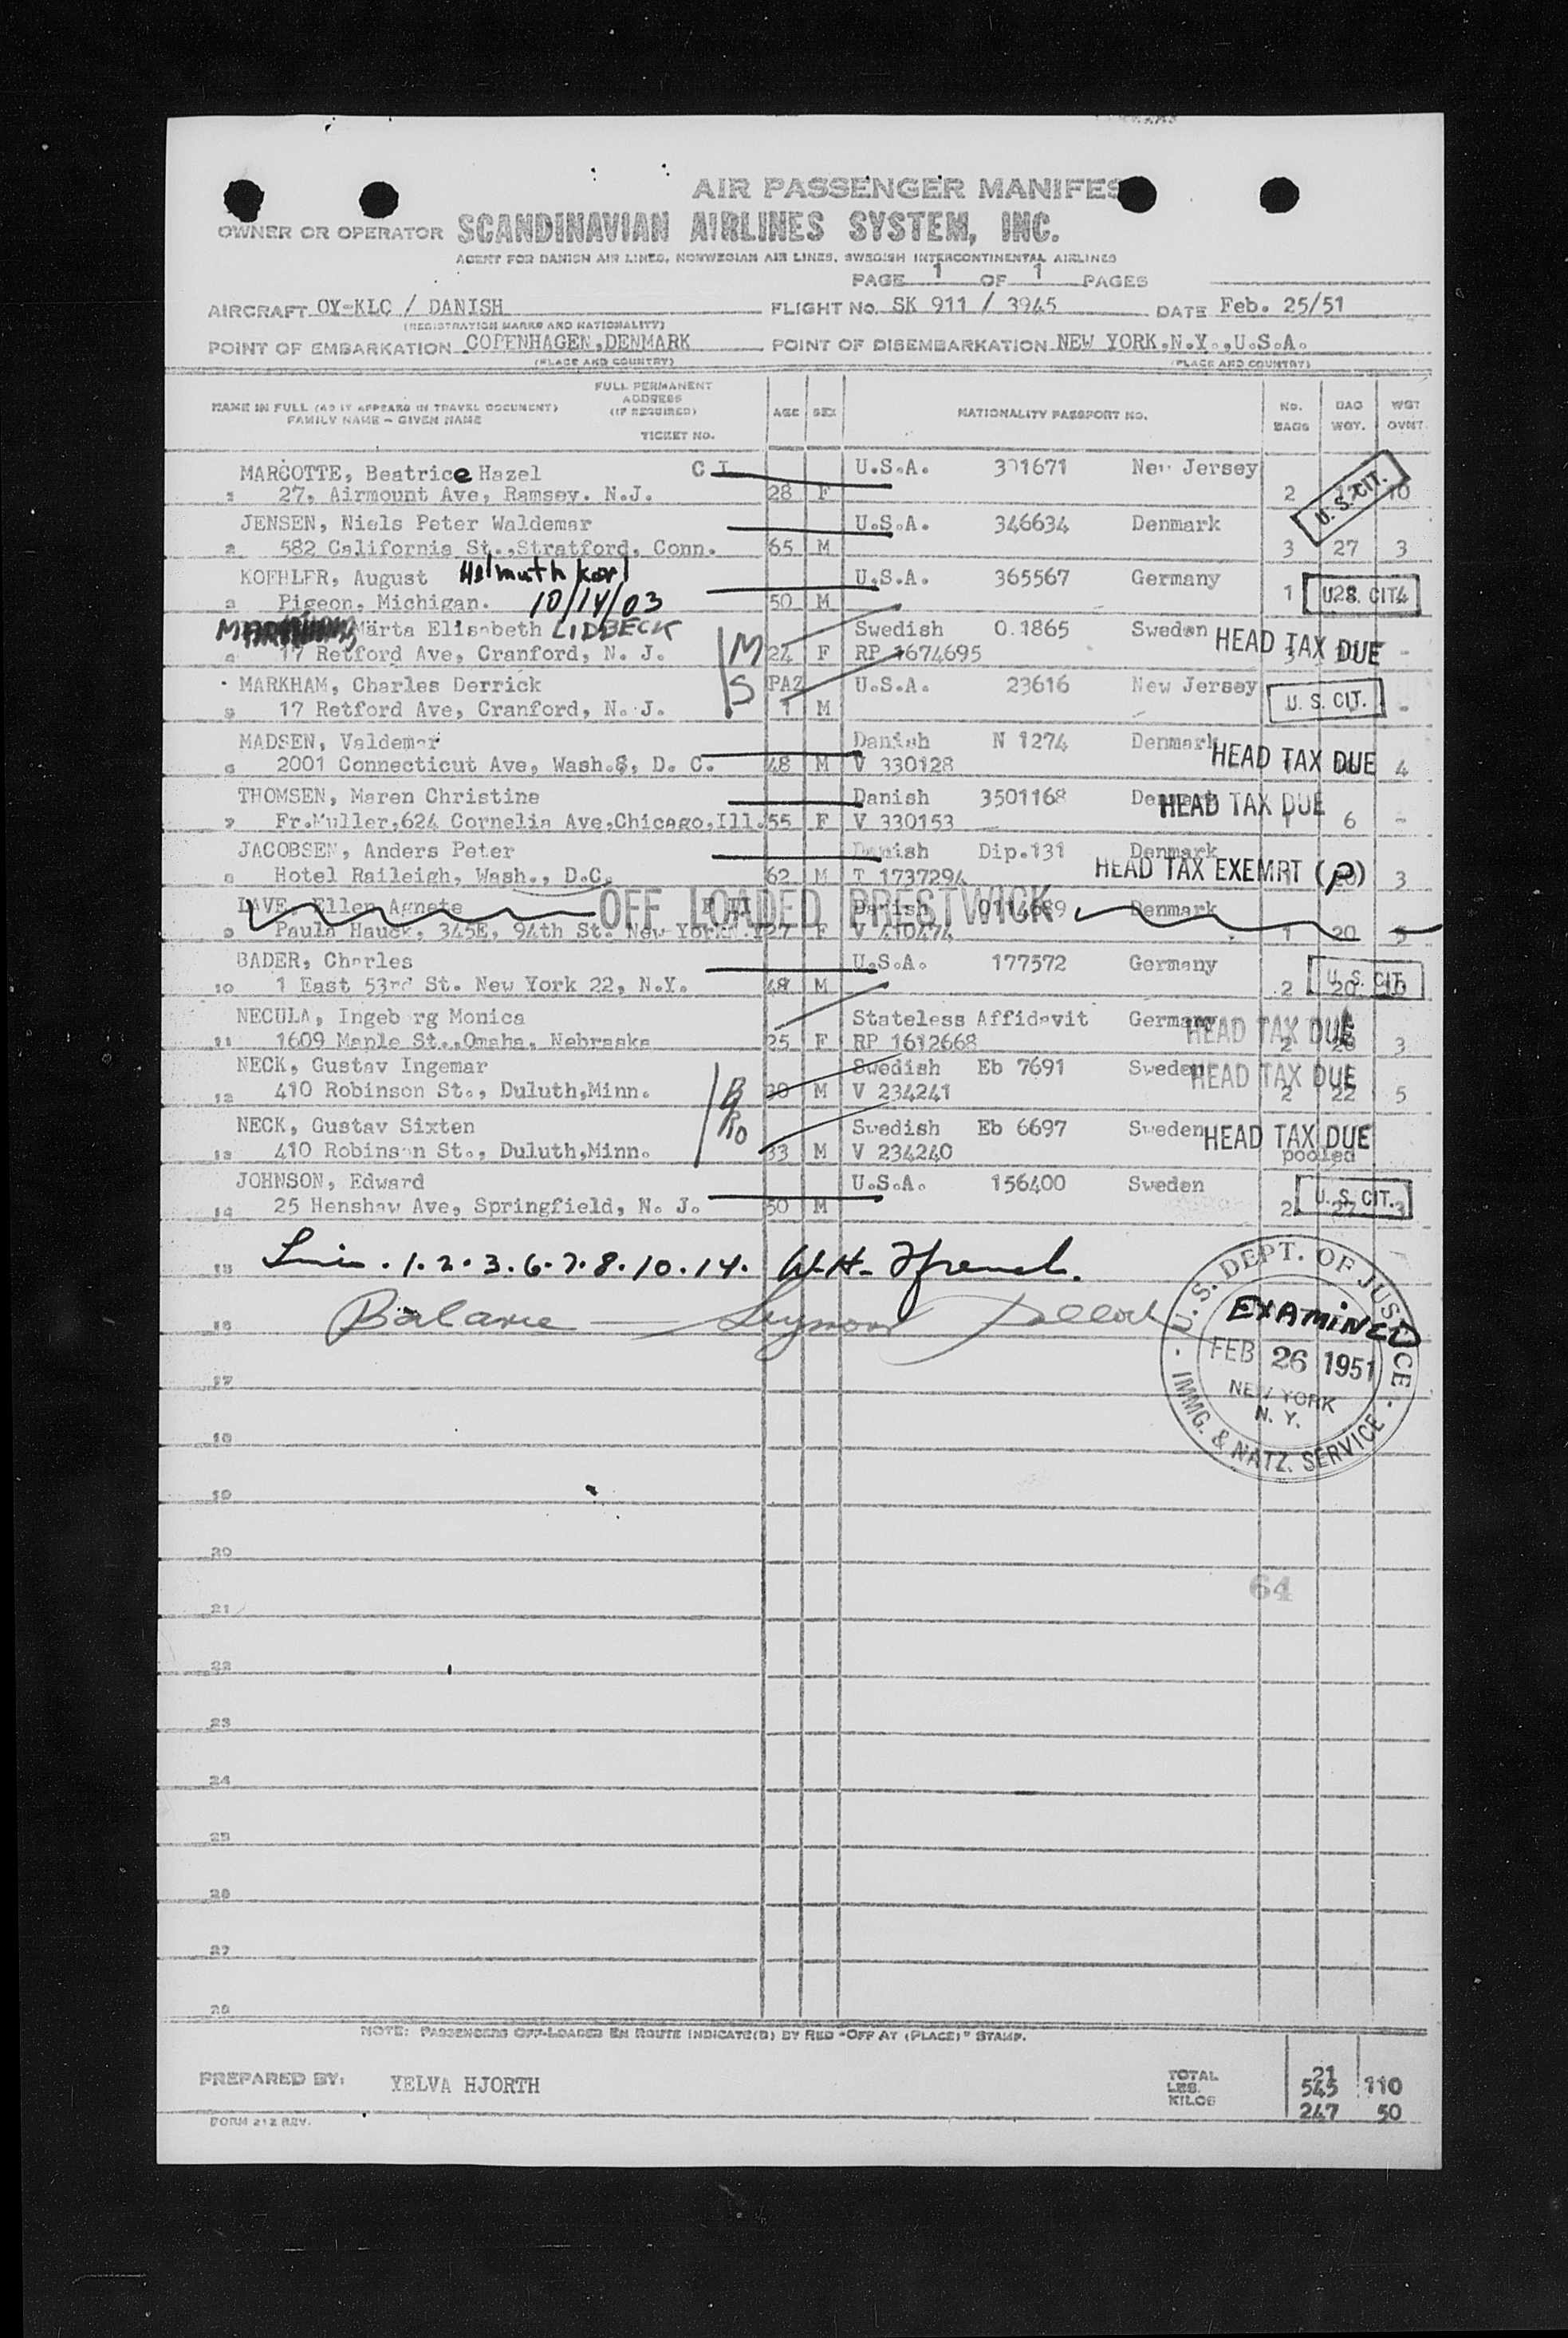 AIR PASSENGER MANIFES
OWNER OR OPERATOR SCANDINAVIAN AIRLINES SYSTEM, INC.
AGENT FOR DANISH AIR LINES, NORWEGIAN AIR LINES, SWEDISH INTERCONTINENTAL AIRLINES
PAGE 1 OF 1 PAGES
AIRCRAFT OY-KLC / DANISH FLIGHT NO. SK 911 / 3945 DATE Feb. 25/51
(REGISTRATION MARKS AND NATIONALITY)
POINT OF EMBARKATION COPENHAGEN,DENMARK POINT OF DISEMBARKATION NEW YORK,N.Y.,U.S.A.
(PLACE AND COUNTRY) (PLACE AND COUNTRY)
NAME IN FULL (AS IT APPEARS IN TRAVEL DOCUMENT) FAMILY NAME - GIVEN NAME FULL PERMANENT ADDRESS (IF REQUIRED) TICKET NO. AGE SEX NATIONALITY PASSPORT NO. No. BAGS BAG WGT. WGT OVWT.
MARCOTTE, Beatrice Hazel C I U.S.A. 301671 New Jersey
1 27, Airmount Ave, Ramsey. N.J. 28 F 2 10 U. S. CIT.
JENSEN, Niels Peter Waldemar U.S.A. 346634 Denmark
2 582 California St.,Stratford, Conn. 65 M 3 27 3
KOEHLER, August Helmuth Karl U.S.A. 365567 Germany
3 Pigeon, Michigan. 10/14/03 50 M 1 28 4 U. S. CIT.
Märta Elisabeth LIDBECK Swedish 0.1865 Sweden HEAD TAX DUE
4 17 Retford Ave, Cranford, N. J. M 24 F RP 1674695 3 -
MARKHAM, Charles Derrick S PAZ U.S.A. 23616 New Jersey
5 17 Retford Ave, Cranford, N. J. 1 M U. S. CIT. -
MADSEN, Valdemar Danish N 1274 Denmark HEAD TAX DUE
6 2001 Connecticut Ave, Wash.8, D. C. 48 M V 330128 4
THOMSEN, Maren Christine Danish 3501168 Denmark HEAD TAX DUE
7 Fr.Muller,624 Cornelia Ave,Chicago,Ill. 55 F V 330153 1 6 -
JACOBSEN, Anders Peter Danish Dip.131 Denmark
8 Hotel Raileigh, Wash., D.C. 62 M T 1737294 HEAD TAX EXEMPT (P) 3
DAVE, Ellen Agnete OFF LOADED PRESTWICK Danish 0114689 Denmark
9 Paula Hauck, 345E, 94th St. New York 27 F V 410474 1 20 5
BADER, Charles U.S.A. 177572 Germany
10 1 East 53rd St. New York 22, N.Y. 48 M 2 20 10 U. S. CIT.
NECULA, Ingeb rg Monica Stateless Affidavit Germany HEAD TAX DUE
11 1609 Maple St.,Omaha, Nebraska 25 F RP 1612668 2 3
NECK, Gustav Ingemar Swedish Eb 7691 Sweden HEAD TAX DUE
12 410 Robinson St., Duluth,Minn. 30 M V 234241 2 22 5
NECK, Gustav Sixten Swedish Eb 6697 Sweden HEAD TAX DUE
13 410 Robinson St., Duluth,Minn. 33 M V 234240 pooled
JOHNSON, Edward U.S.A. 156400 Sweden
14 25 Henshaw Ave, Springfield, N. J. 50 M 2 27 3 U. S. CIT.
15 1. 2. 3. 6. 7. 8. 10. 14. W.H. French.
16 Balance — Seymour
U. S. DEPT. OF JUSTICE
EXAMINED
FEB 26 1951
NEW YORK
N. Y.
IMMG. & NATZ. SERVICE
17
18
19
20
64
21
22
23
24
25
26
27
28
NOTE: PASSENGERS OFF-LOADED EN ROUTE INDICATE(D) BY RED "OFF AT (PLACE)" STAMP.
PREPARED BY: YELVA HJORTH
TOTAL 21
LBS. 545 110
KILOS 247 50
FORM 212 REV.